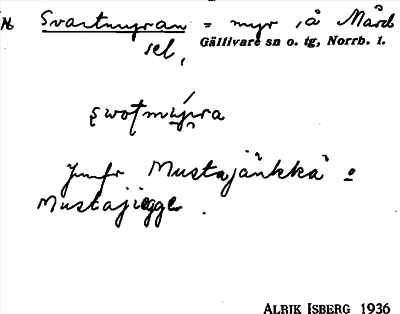 Svartmyran = myr i å Mård
sel,
Gällivare sn o. tg, Norrb. l.
Jmfr Mustajänkkä o
Mustajiegge.
ALRIK ISBERG 1936